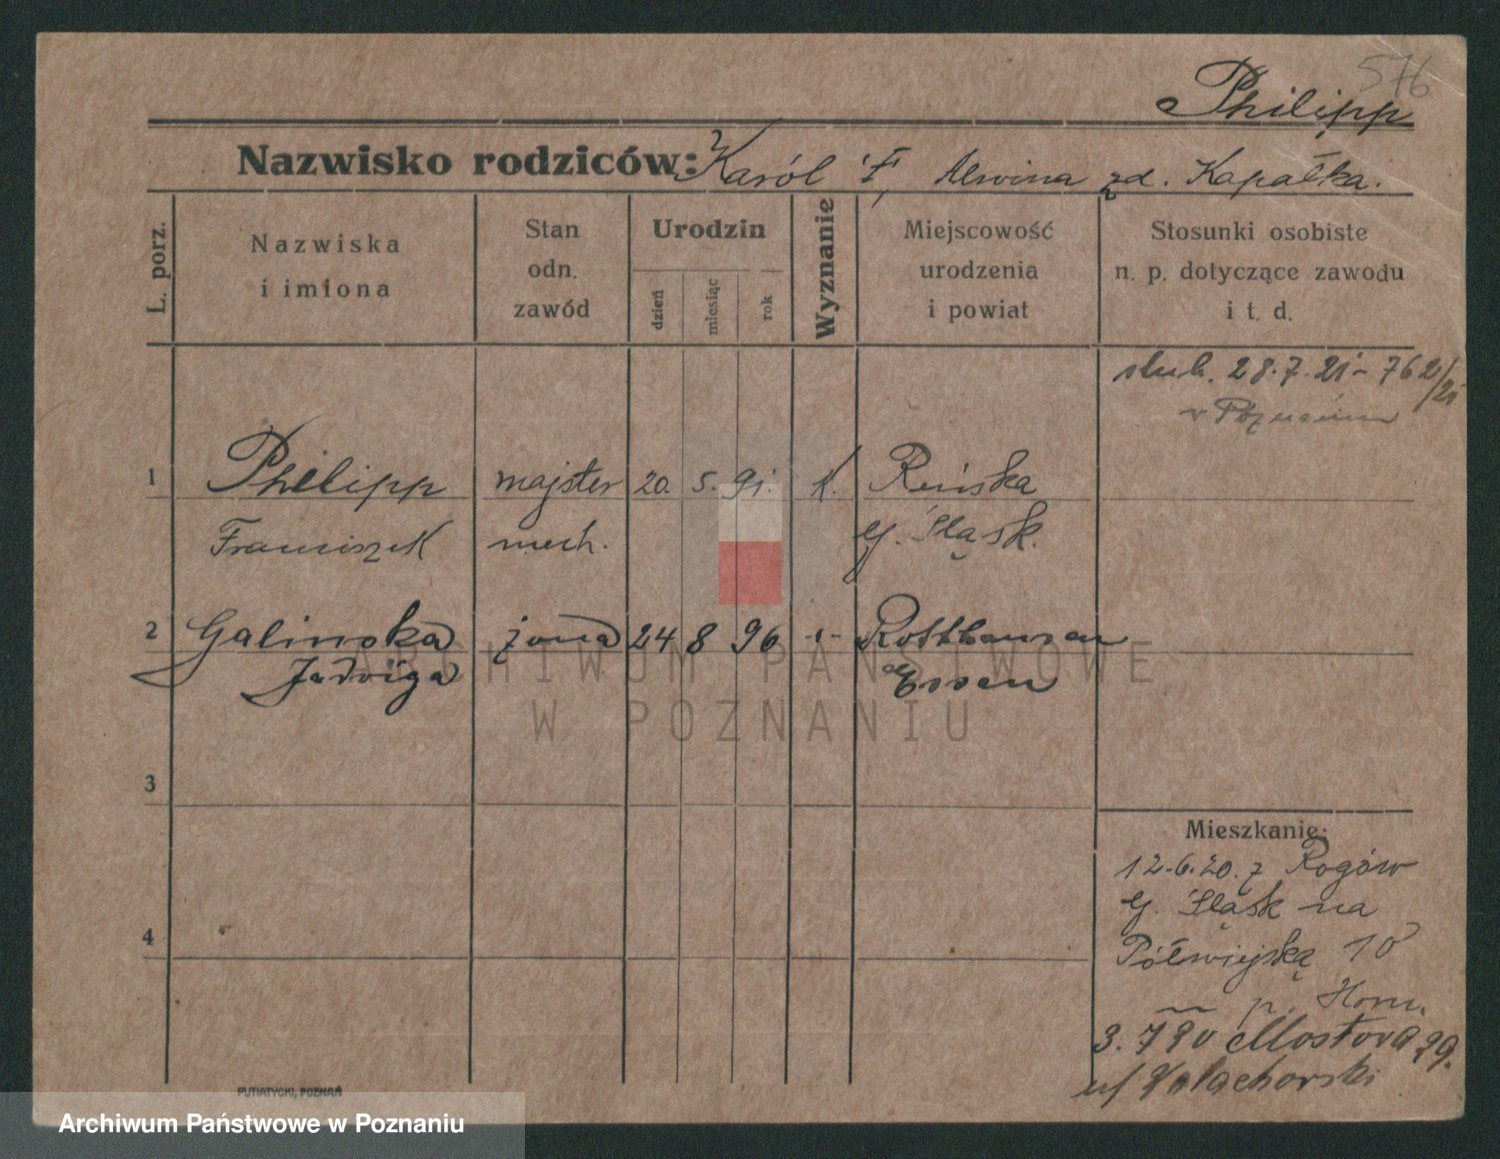 576
Philipp
Nazwisko rodziców: Karól Alwina zd. Kapałka.
L. porz.
Nazwiska i imiona
Stan odn. zawód
Urodzin
dzień
miesiąc
rok
Wyznanie
Miejscowość urodzenia i powiat
Stosunki osobiste n. p. dotyczące zawodu i t. d.
slub. 28.7.21 - 762/21
w Poznaniu
1 Philipp majster 20. 5. 91. k. Reńska
Franciszek mech. G. Śląsk.
2 Galinska żona 24 8 96 -"- Rotthausen
Jadwiga Essen
ARCHIWUM PAŃSTWOWE
W POZNANIU
3
Mieszkanie:
12.6.20. z Rogów
G. Śląsk na
4
Półwiejską 10
p. Horn.
3. 7 20 Mostowa 29.
PUTIATYCKI, POZNAŃ
Archiwum Państwowe w Poznaniu